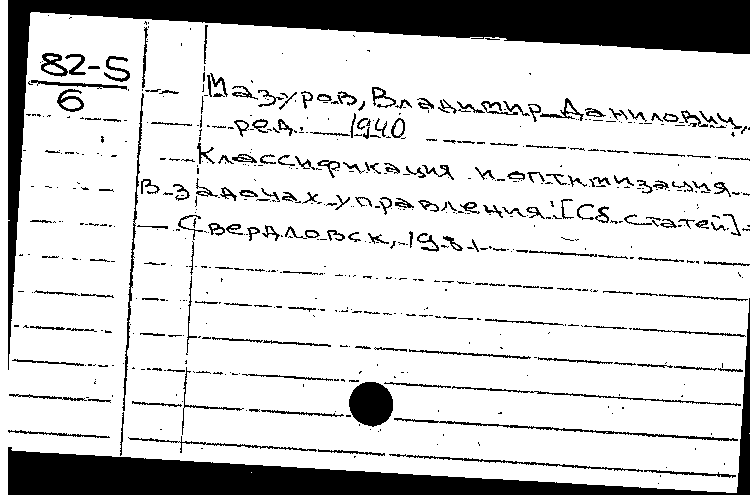 82-5
6
Мазуров, Владимир Данилович,
ред. 1940
Классификация и оптимизация
в задачах управления: [Сб статей]
Свердловск, 1981